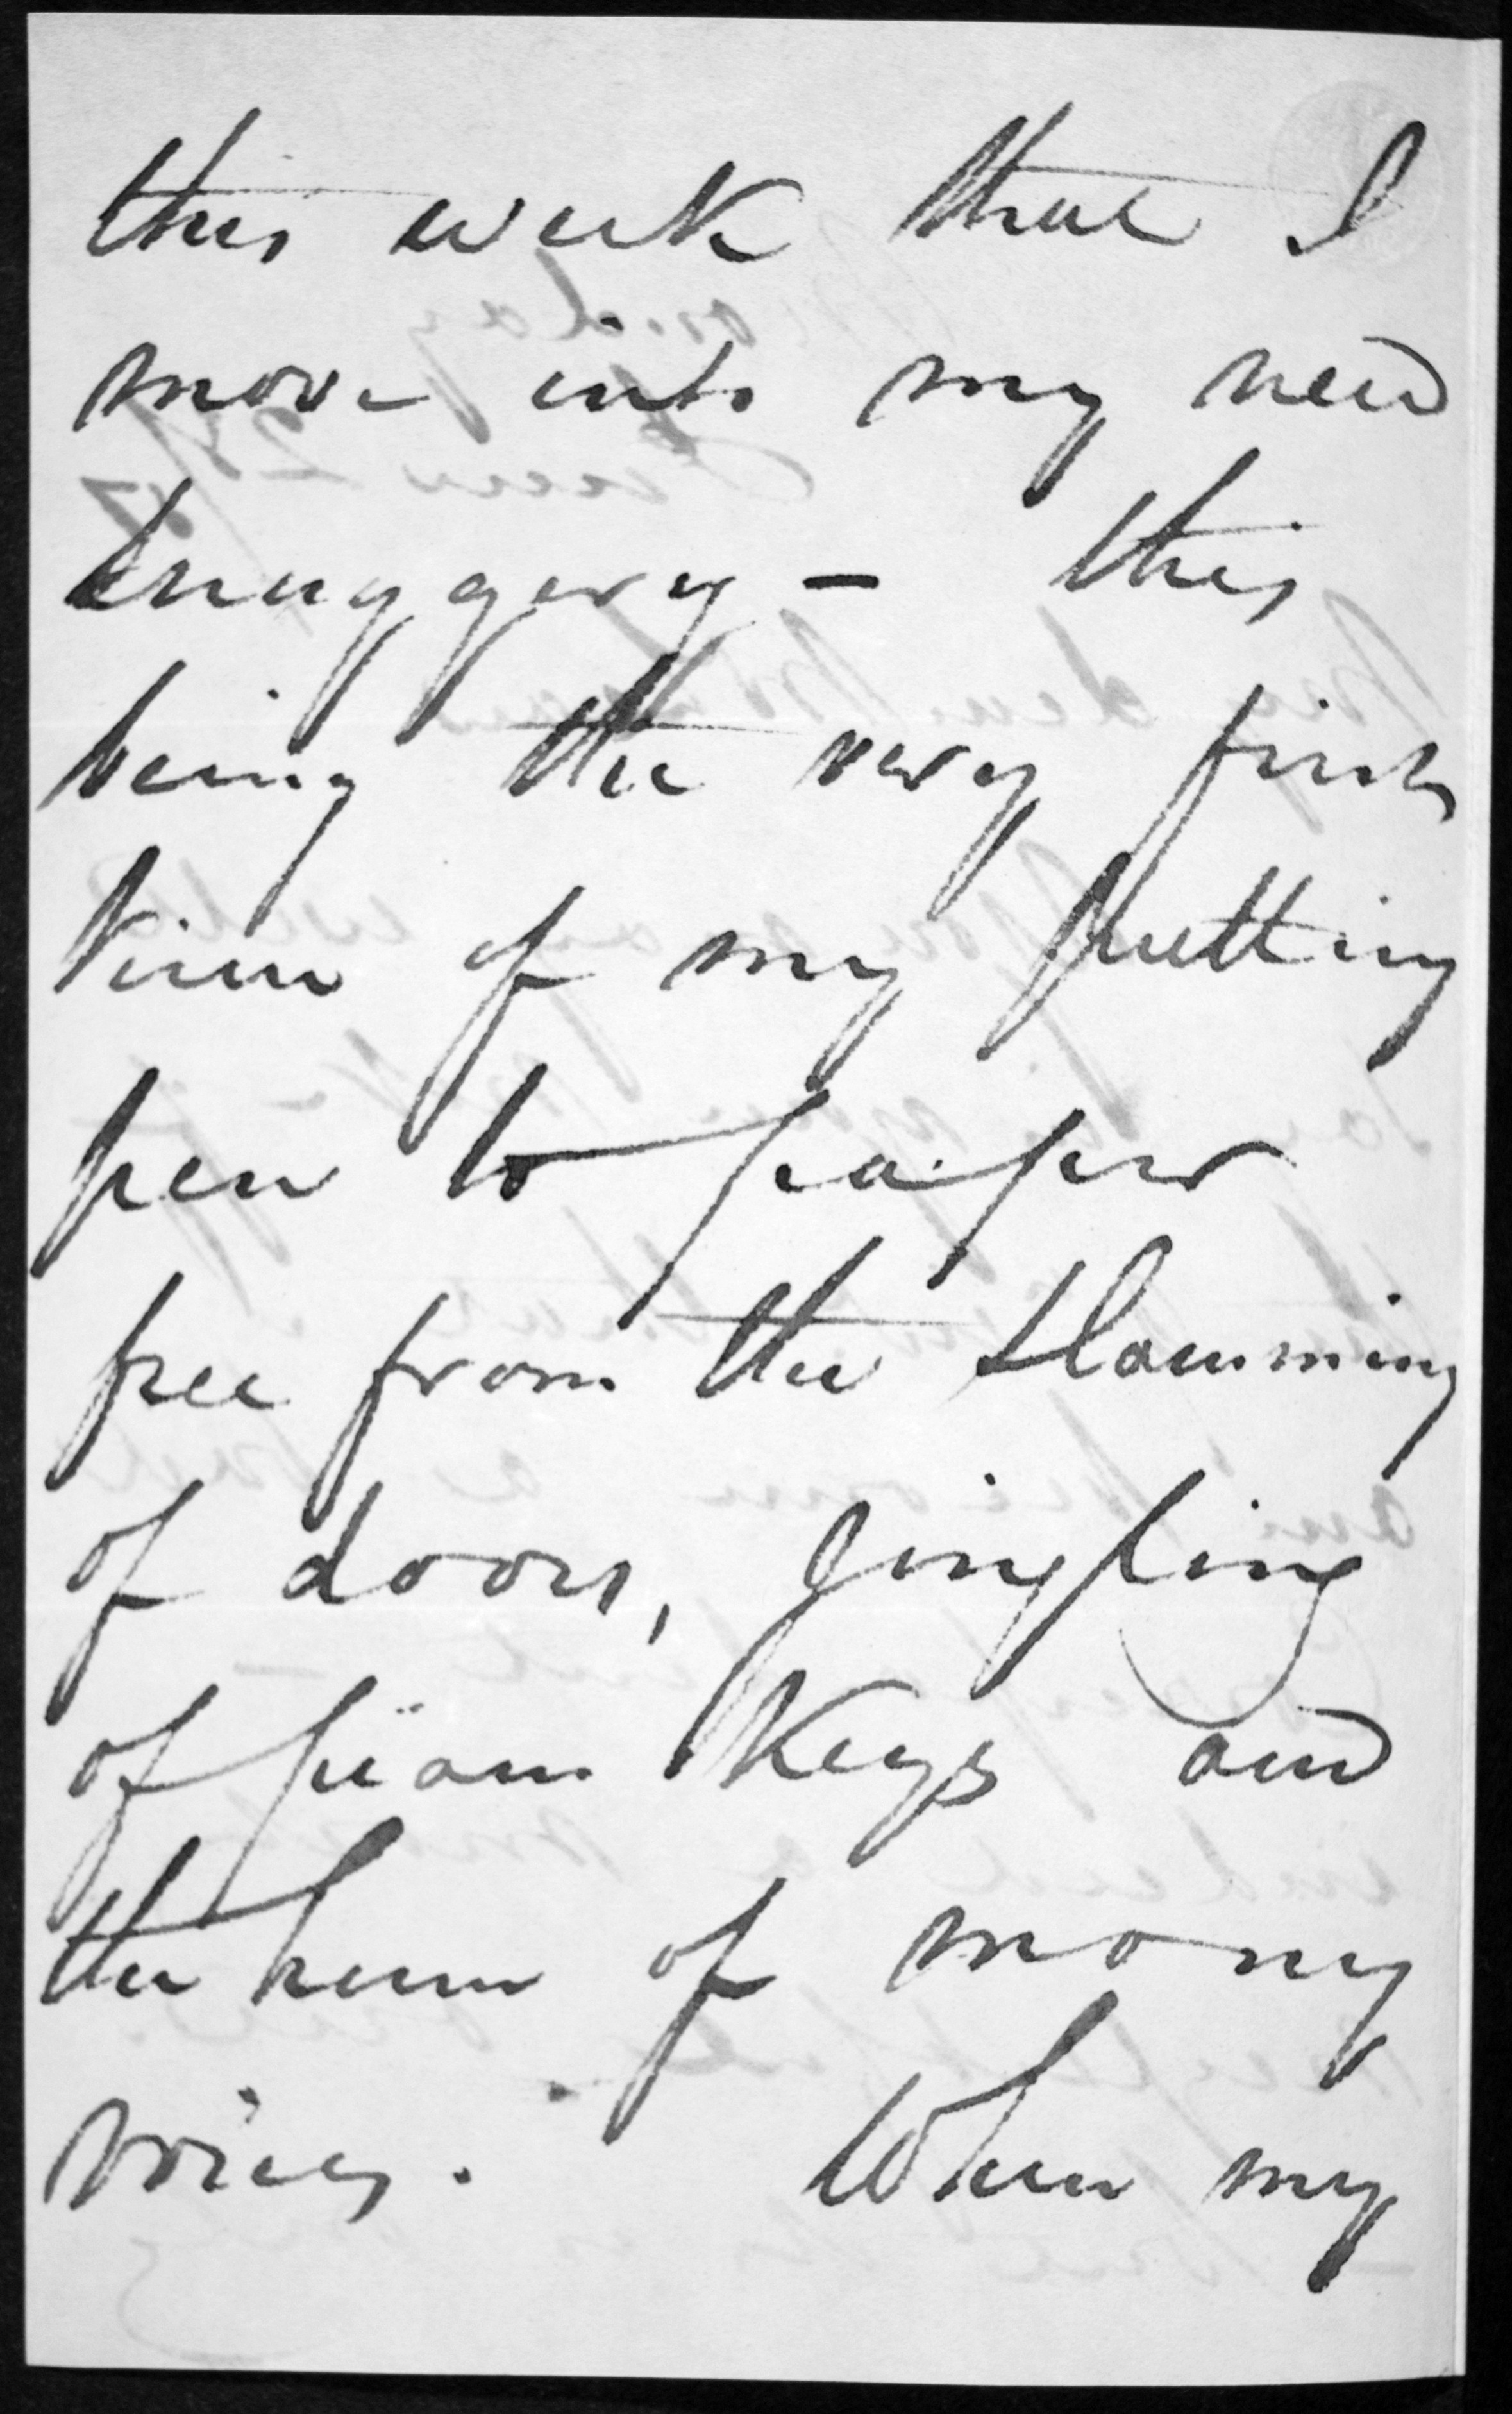 this week that I
move into my new
snuggery – this
being the very first
time of my putting
pen to paper
free from the slamming
of doors, jingling
of piano keys and
the hum of many
voices. When my